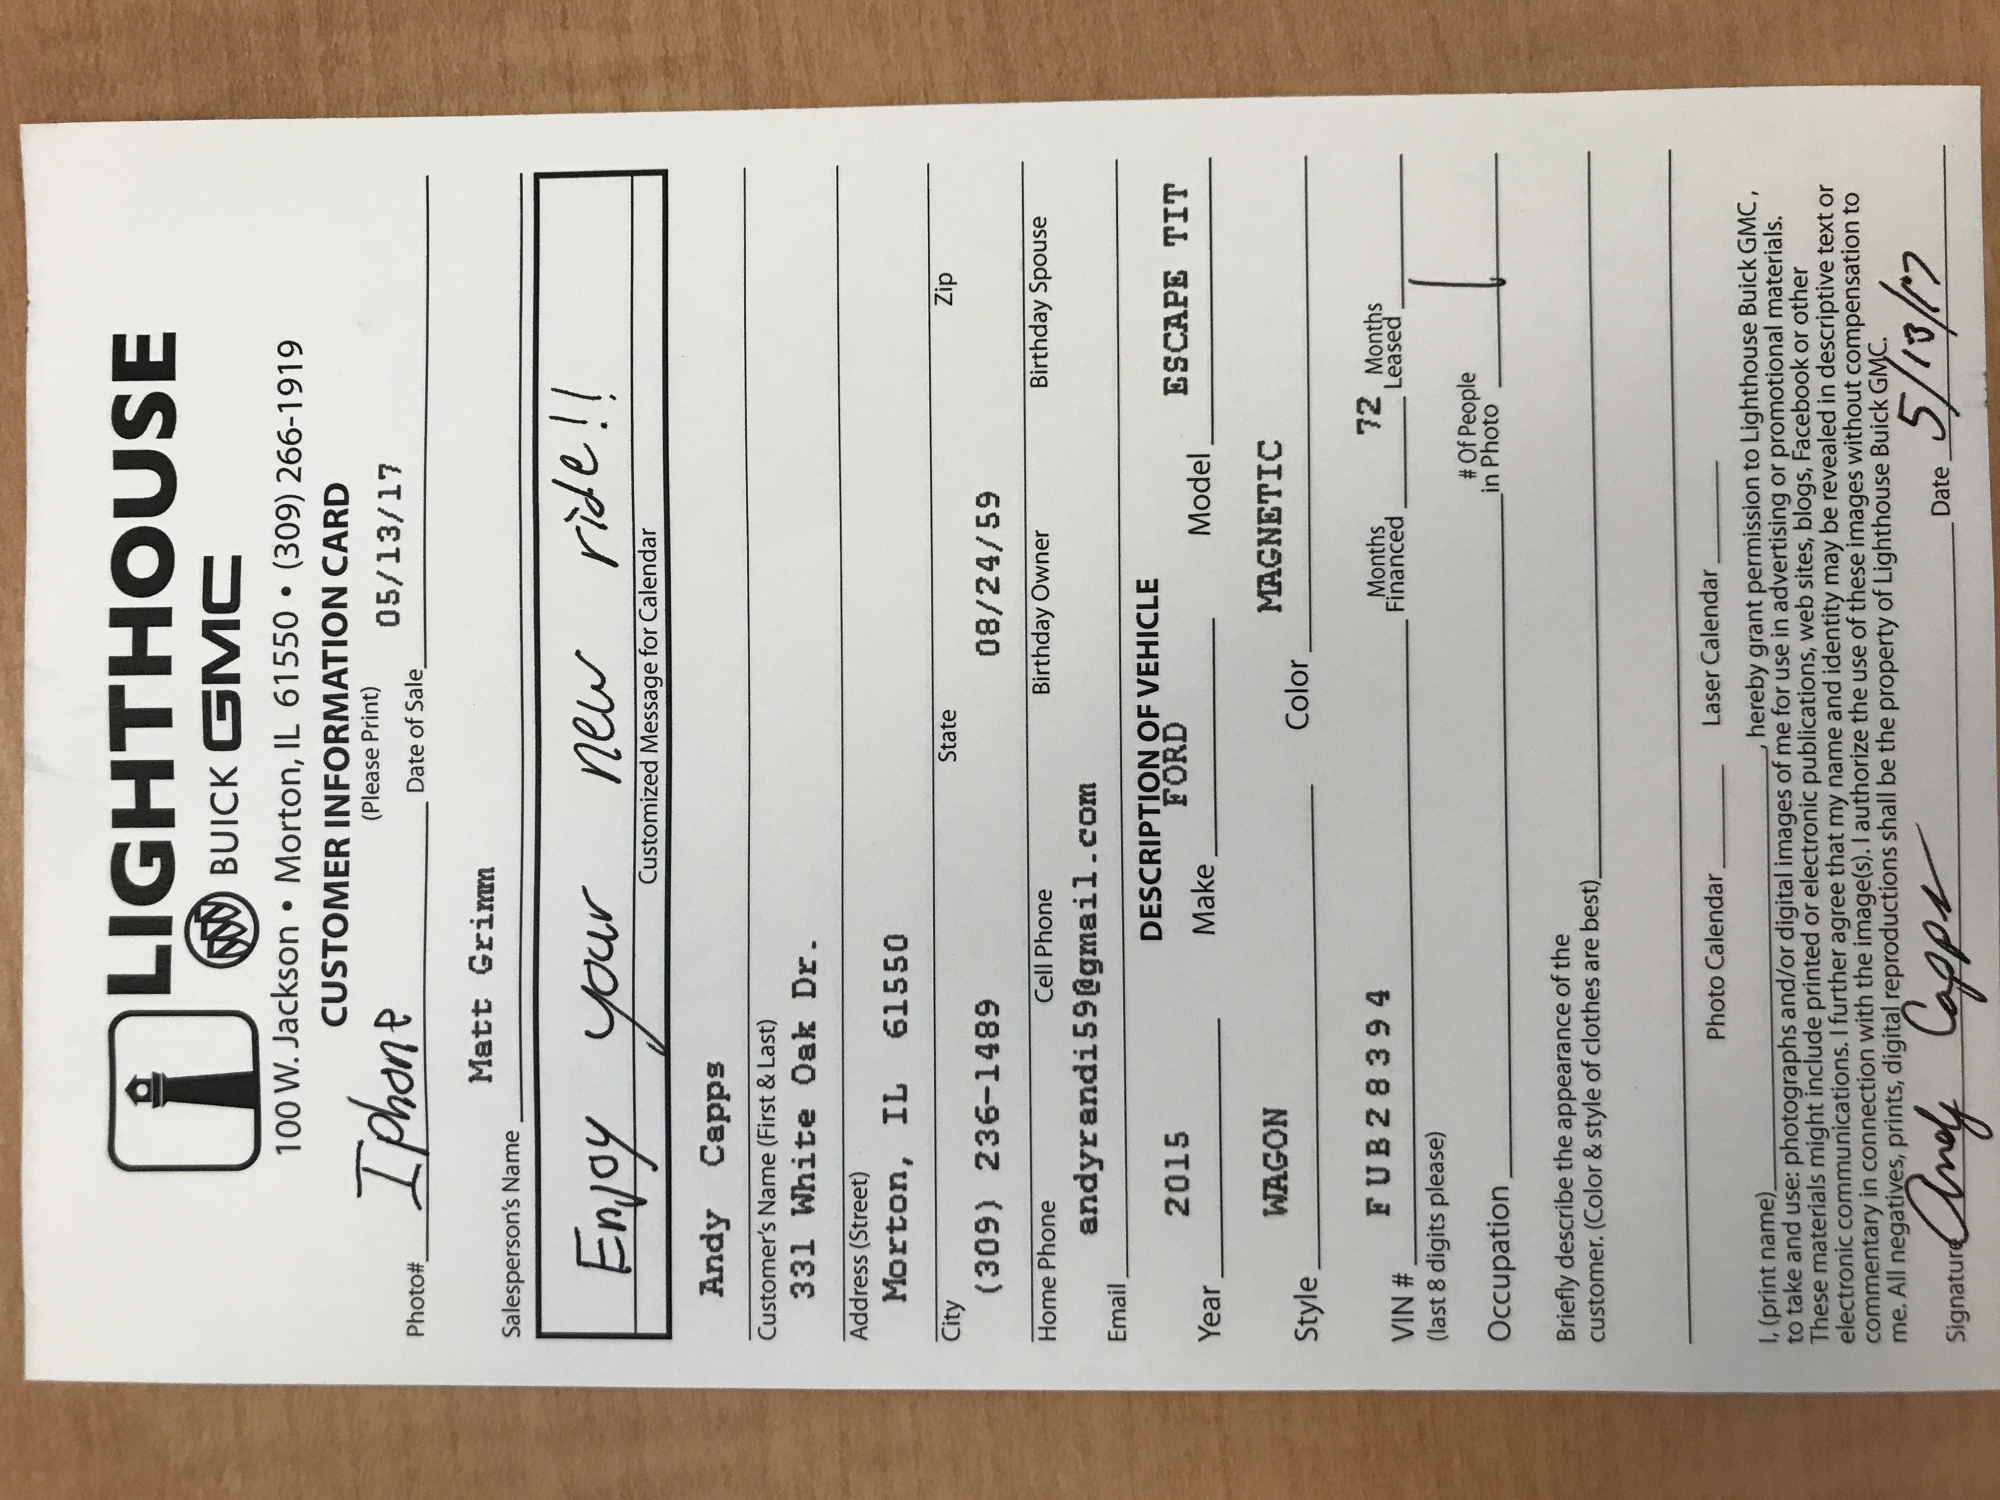 LIGHTHOUSE
BUICK GMC
100 W. Jackson • Morton, IL 61550 • (309) 266-1919
CUSTOMER INFORMATION CARD
(Please Print)
Photo# Iphone Date of Sale 05/13/17
Matt Grimm
Salesperson's Name
Enjoy your new ride!!
Customized Message for Calendar
Andy Capps
Customer's Name (First & Last)
331 White Oak Dr.
Address (Street)
Morton, IL 61550
City State Zip
(309) 236-1489 08/24/59
Home Phone Cell Phone Birthday Owner Birthday Spouse
andyrandi59@gmail.com
Email
DESCRIPTION OF VEHICLE
Year 2015 Make FORD Model ESCAPE TIT
Style WAGON Color MAGNETIC
VIN # FUB28394 Months Financed 72 Months Leased
(last 8 digits please)
Occupation # Of People in Photo 1
Briefly describe the appearance of the
customer. (Color & style of clothes are best)
Photo Calendar Laser Calendar
I, (print name) , hereby grant permission to Lighthouse Buick GMC ,
to take and use: photographs and/or digital images of me for use in advertising or promotional materials.
These materials might include printed or electronic publications, web sites, blogs, Facebook or other
electronic communications. I further agree that my name and identity may be revealed in descriptive text or
commentary in connection with the image(s). I authorize the use of these images without compensation to
me. All negatives, prints, digital reproductions shall be the property of Lighthouse Buick GMC.
Signature Andy Capps Date 5/13/17